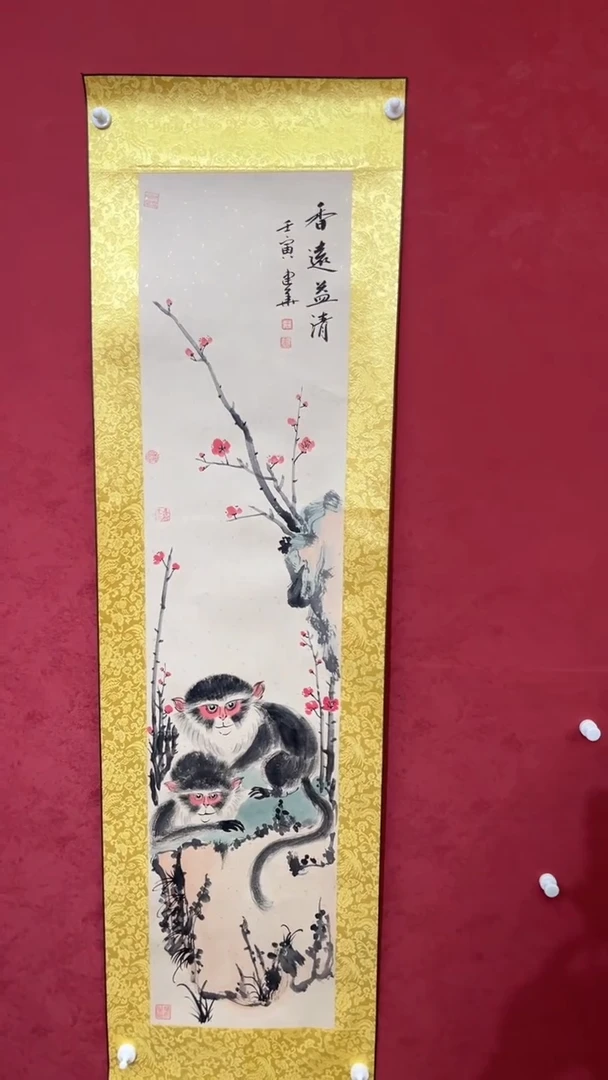 香遠益清
壬寅 建華